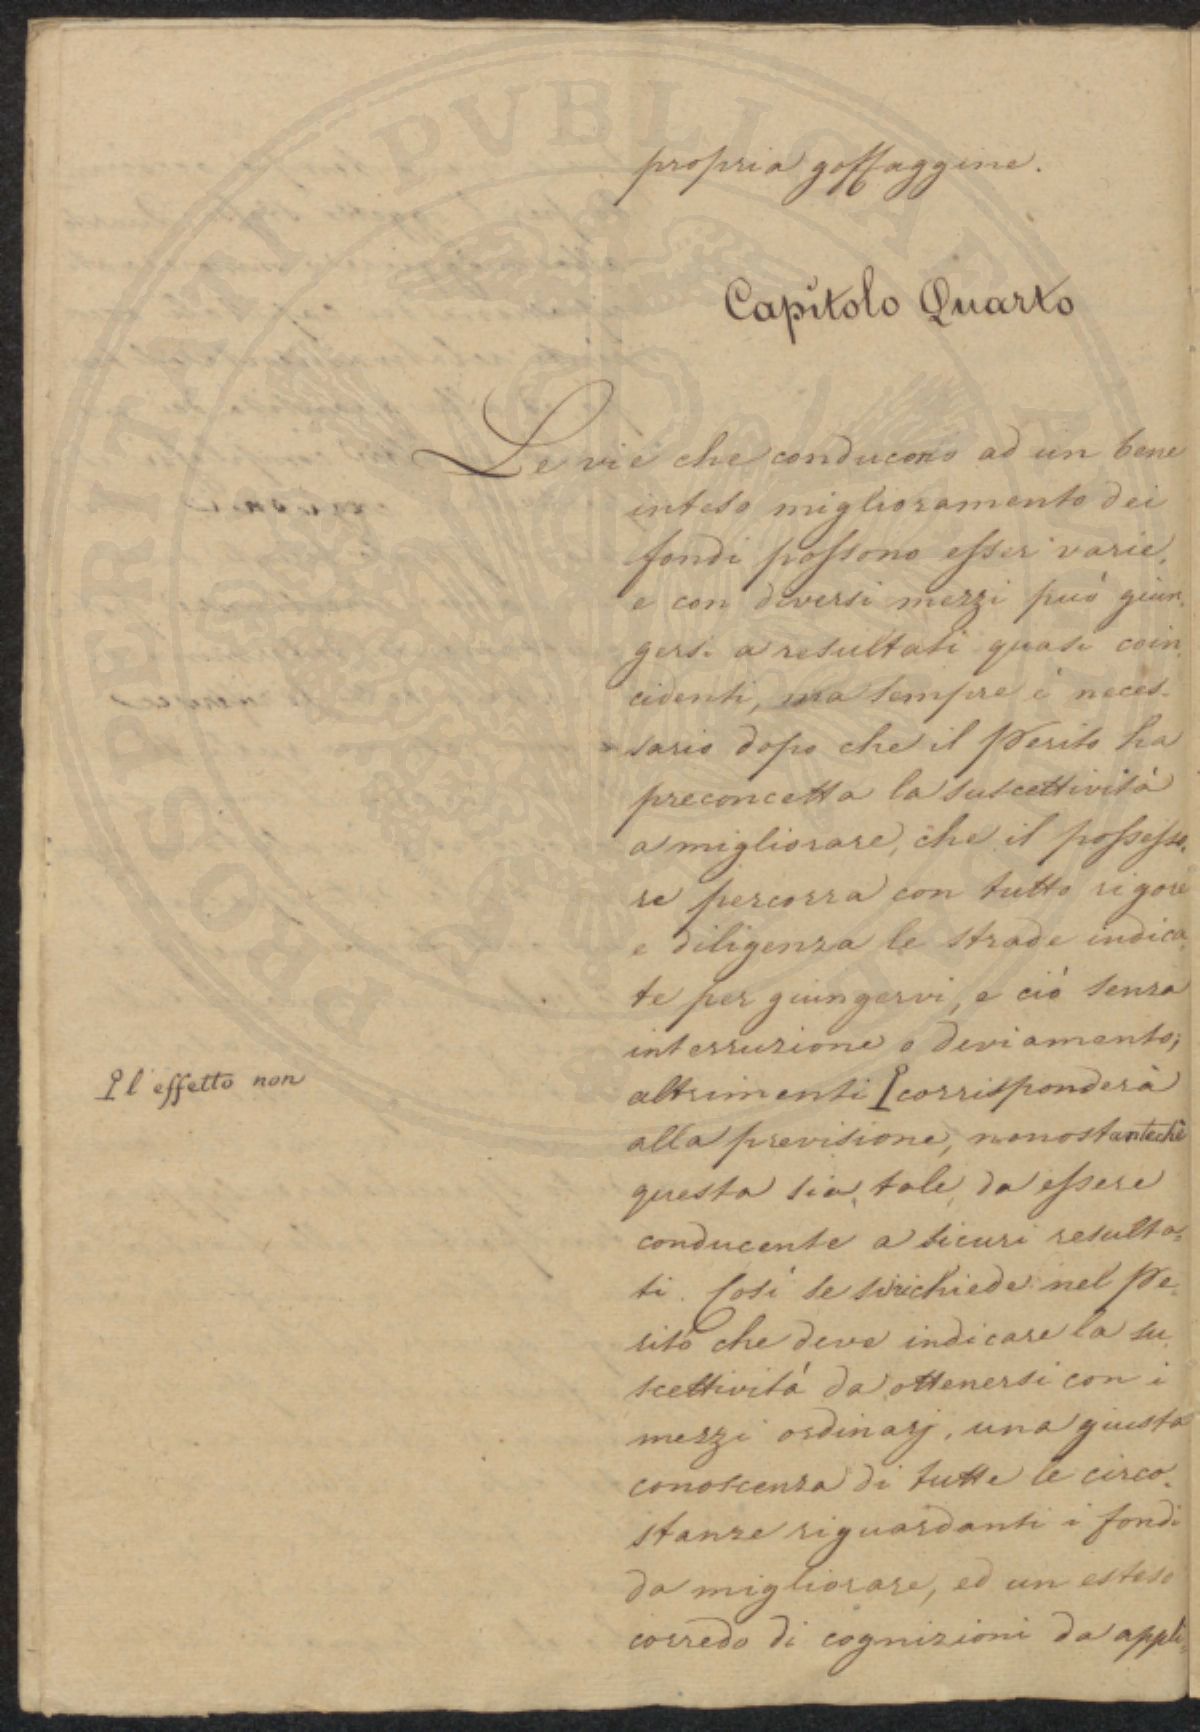 propria goffaggine.
Capitolo Quarto
Le vie che conducono ad un bene
inteso miglioramento dei
fondi possono esser varie,
e con diversi mezzi può giun-
gersi a resultati quasi coin-
cidenti, ma sempre è neces-
sario dopo che il Perito ha
preconcetta la suscettività
a migliorare, che il possesso-
re percorra con tutto rigore
e diligenza le strade indica-
te per giungervi, e ciò senza
interruzione o deviamento;
l'effetto non
altrimenti corrisponderà
alla previsione, nonostantechè
questa sia, tale, da essere
conducente a sicuri resulta-
ti. Così se si richiede nel Pe-
rito che deve indicare la su-
scettività da ottenersi con i
mezzi ordinarj, una giusta
conoscenza di tutte le circo-
stanze riguardanti i fondi
da migliorare, ed un esteso
corredo di cognizioni da appli-
PROSPERITATI PUBLICAE